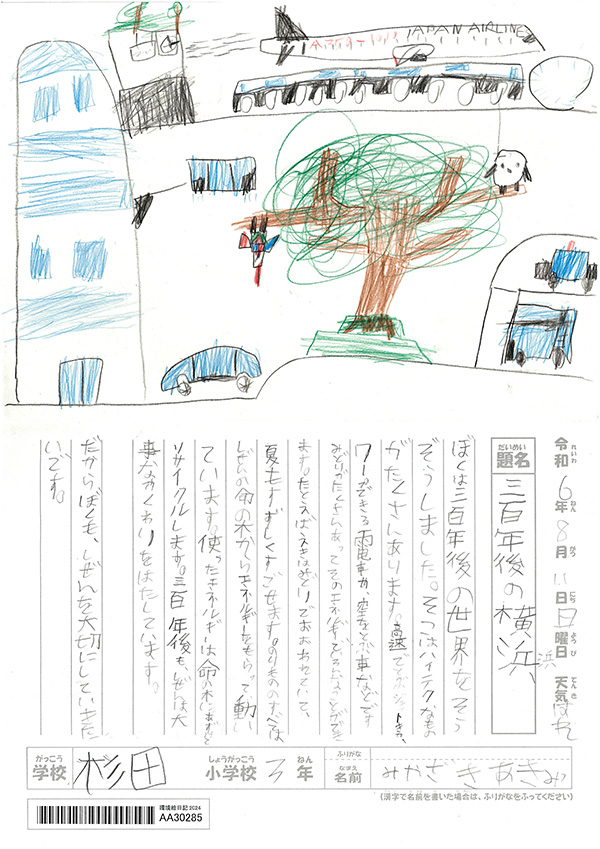 JAPAN AIRLINE
令和6年8月11日日曜日 天気はれ
題名 三百年後の横浜
浜
ぼくは三百年後の世界をそう
ぞうしました。そこはハイテクなもの
がたくさんあります。高速で
ワープできる電車や、空をとぶ車などです
みどりがたくさんあって そのエネルギーで
ます。たとえばえきはみどりでおおわれていて、
夏もすずしくすごせます。のりもののすべては
しぜんの命の木からエネルギーをもらって動い
ています。使ったエネルギーは命の木に
リサイクルします。三百年後も、しぜんは大
事なやくわりをはたしています。
だからぼくも、しぜんを大切にしていきた
いです。
学校 杉田 小学校 3年 名前 みかざきあきみつ
(漢字で名前を書いた場合は、ふりがなをふってください)
環境絵日記2024
AA30285